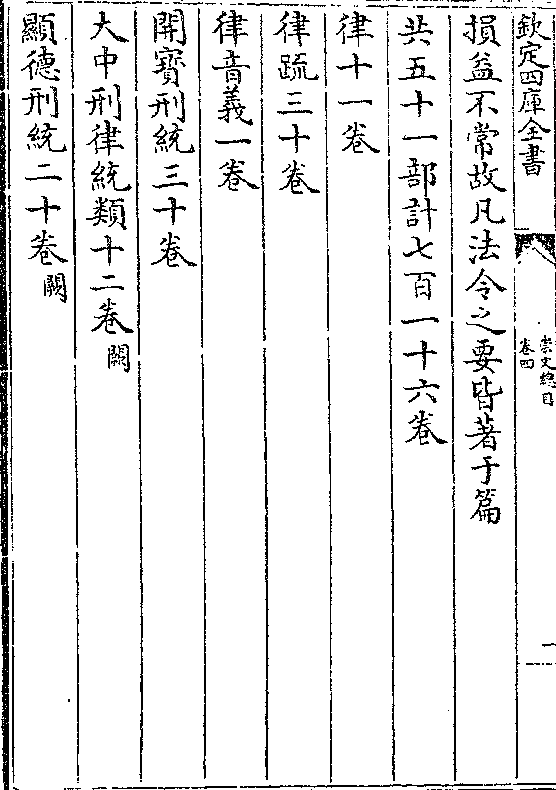 欽定四庫全書
崇文總目
卷四
一
損益不常故凡法令之要皆著于篇
共五十一部計七百一十六卷
律十一卷
律疏三十卷
律音義一卷
開寶刑統三十卷
大中刑律統類十二卷闕
顯德刑統二十卷闕